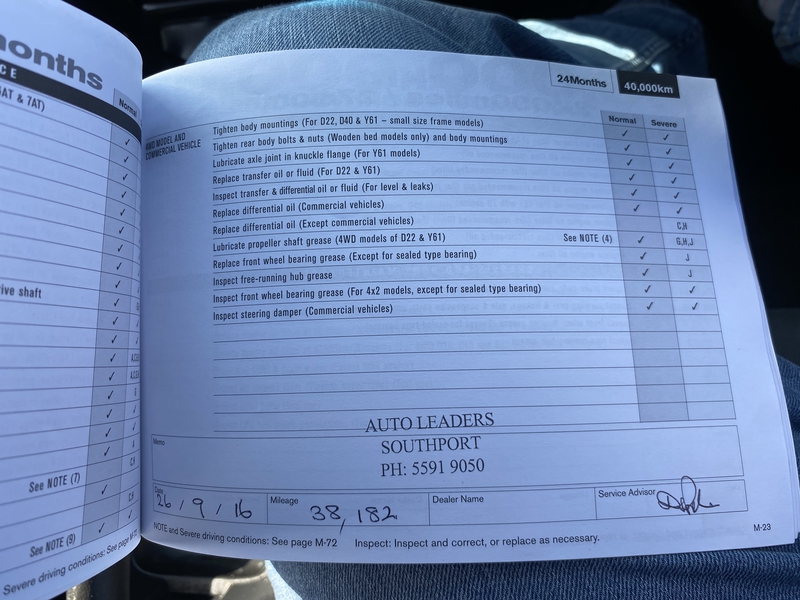 onths
CE
6AT & 7AT)
Normal
ive shaft
See NOTE (7)
C,H
See NOTE (9)
Severe driving conditions: See page M-72
24Months
40,000km
Normal Severe
4WD MODEL AND
COMMERCIAL VEHICLE
Tighten body mountings (For D22, D40 & Y61 – small size frame models) ✓ ✓
Tighten rear body bolts & nuts (Wooden bed models only) and body mountings ✓ ✓
Lubricate axle joint in knuckle flange (For Y61 models) ✓ ✓
Replace transfer oil or fluid (For D22 & Y61) ✓ ✓
Inspect transfer & differential oil or fluid (For level & leaks) ✓ ✓
Replace differential oil (Commercial vehicles)
Replace differential oil (Except commercial vehicles) C,H
Lubricate propeller shaft grease (4WD models of D22 & Y61) See NOTE (4) ✓ G,H,J
Replace front wheel bearing grease (Except for sealed type bearing) ✓ J
Inspect free-running hub grease ✓ J
Inspect front wheel bearing grease (For 4x2 models, except for sealed type bearing) ✓ ✓
Inspect steering damper (Commercial vehicles) ✓ ✓
Memo
AUTO LEADERS
SOUTHPORT
PH: 5591 9050
Date
26 / 9 / 16
Mileage
38,182
Dealer Name
Service Advisor
NOTE and Severe driving conditions: See page M-72 Inspect: Inspect and correct, or replace as necessary.
M-23